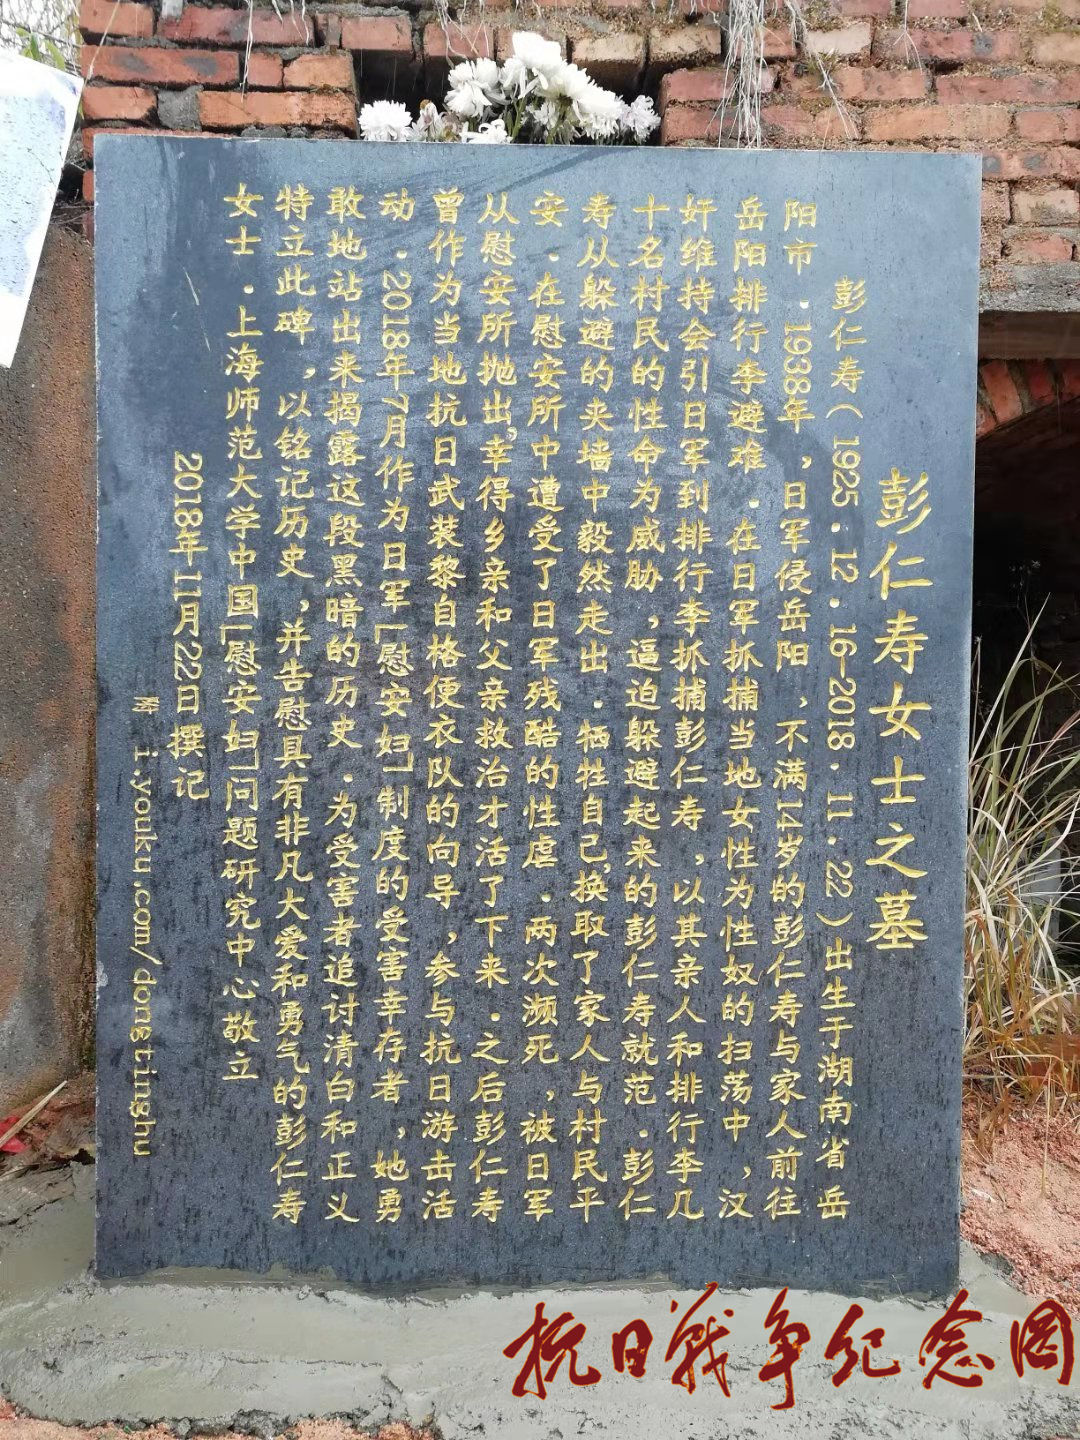 彭仁寿女士之墓
彭仁寿（1925.12.16-2018.11.22）出生于湖南省岳
阳市．1938年，日军侵岳阳，不满14岁的彭仁寿与家人前往
岳阳排行李避难．在日军抓捕当地女性为性奴的扫荡中，汉
奸维持会引日军到排行李抓捕彭仁寿，以其亲人和排行李几
十名村民的性命为威胁，逼迫躲避起来的彭仁寿就范．彭仁
寿从躲避的夹墙中毅然走出．牺牲自已，换取了家人与村民平
安．在慰安所中遭受了日军残酷的性虐．两次濒死，被日军
从慰安所抛出，幸得乡亲和父亲救治才活了下来．之后彭仁寿
曾作为当地抗日武装黎自格便衣队的向导，参与抗日游击活
动．2018年7月作为日军「慰安妇」制度的受害幸存者，她勇
敢地站出来揭露这段黑暗的历史．为受害者追讨清白和正义
特立此碑，以铭记历史，并告慰具有非凡大爱和勇气的彭仁寿
女士．上海师范大学中国「慰安妇」问题研究中心敬立
2018年11月22日撰记
附 i.youku.com/dongtinghu
抗日战争纪念网